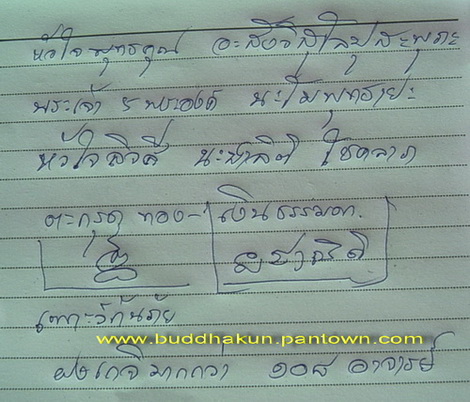 หัวใจพุทธคุณ อะสังวิสุโลปุสะพุภะ
พระเจ้า ๕ พระองค์ นะโมพุทธายะ
หัวใจสิวลี นะชาลิติ
ตะกรุด ทอง - เงินธรรมดา
นชาลิติ
เกาะวักันภัย
www.buddhakun.pantown.com
มากกว่า ๑๐๘ อาจารย์